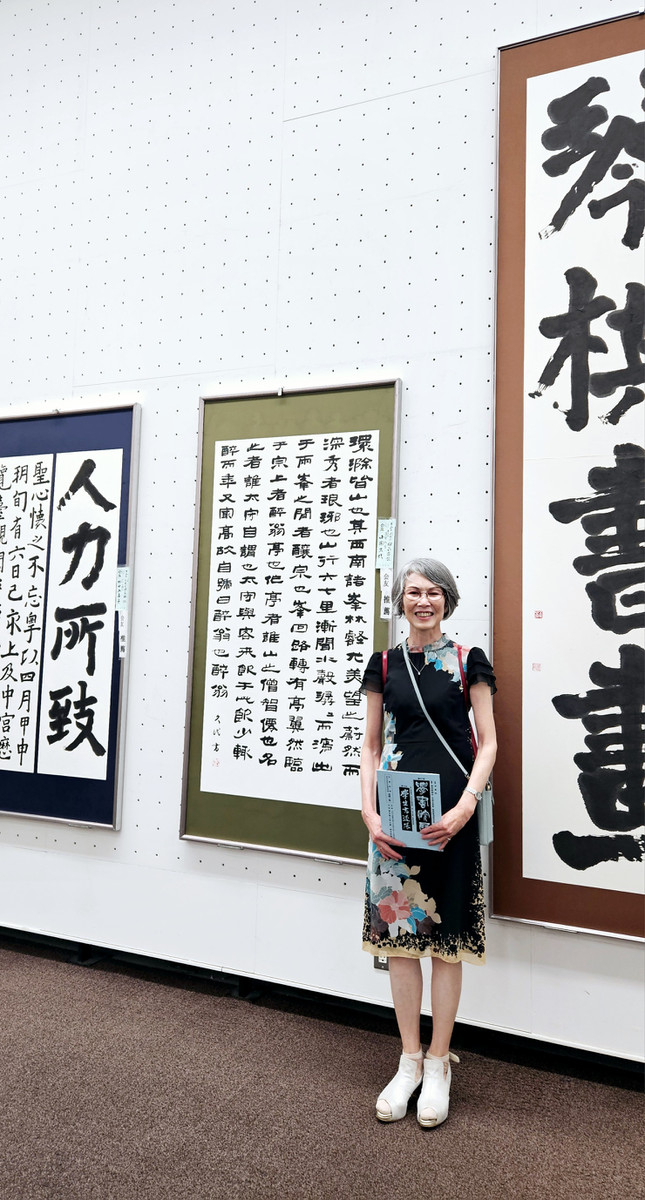 琴棋書畫
環滁皆山也其西南諸峯林壑尤美望之蔚然而
深秀者琅琊也山行六七里漸聞水聲潺潺而瀉出
于兩峯之間者釀泉也峯回路轉有亭翼然臨
于泉上者醉翁亭也作亭者誰山之僧智僊也名
之者誰太守自謂也太守與客來飲于此飲少輒
醉而年又冣高故自號曰醉翁也醉翁
会友 推薦
人力所致
聖心懷之不忘粤以四月甲申
朔旬有六日己亥上及中宮歷
覽臺觀閒